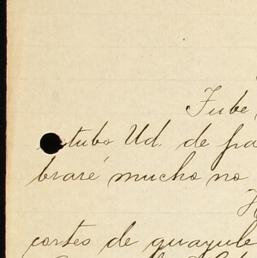 Tube
tubo Ud. de fra
braré mucho no
H
cortes de guayule